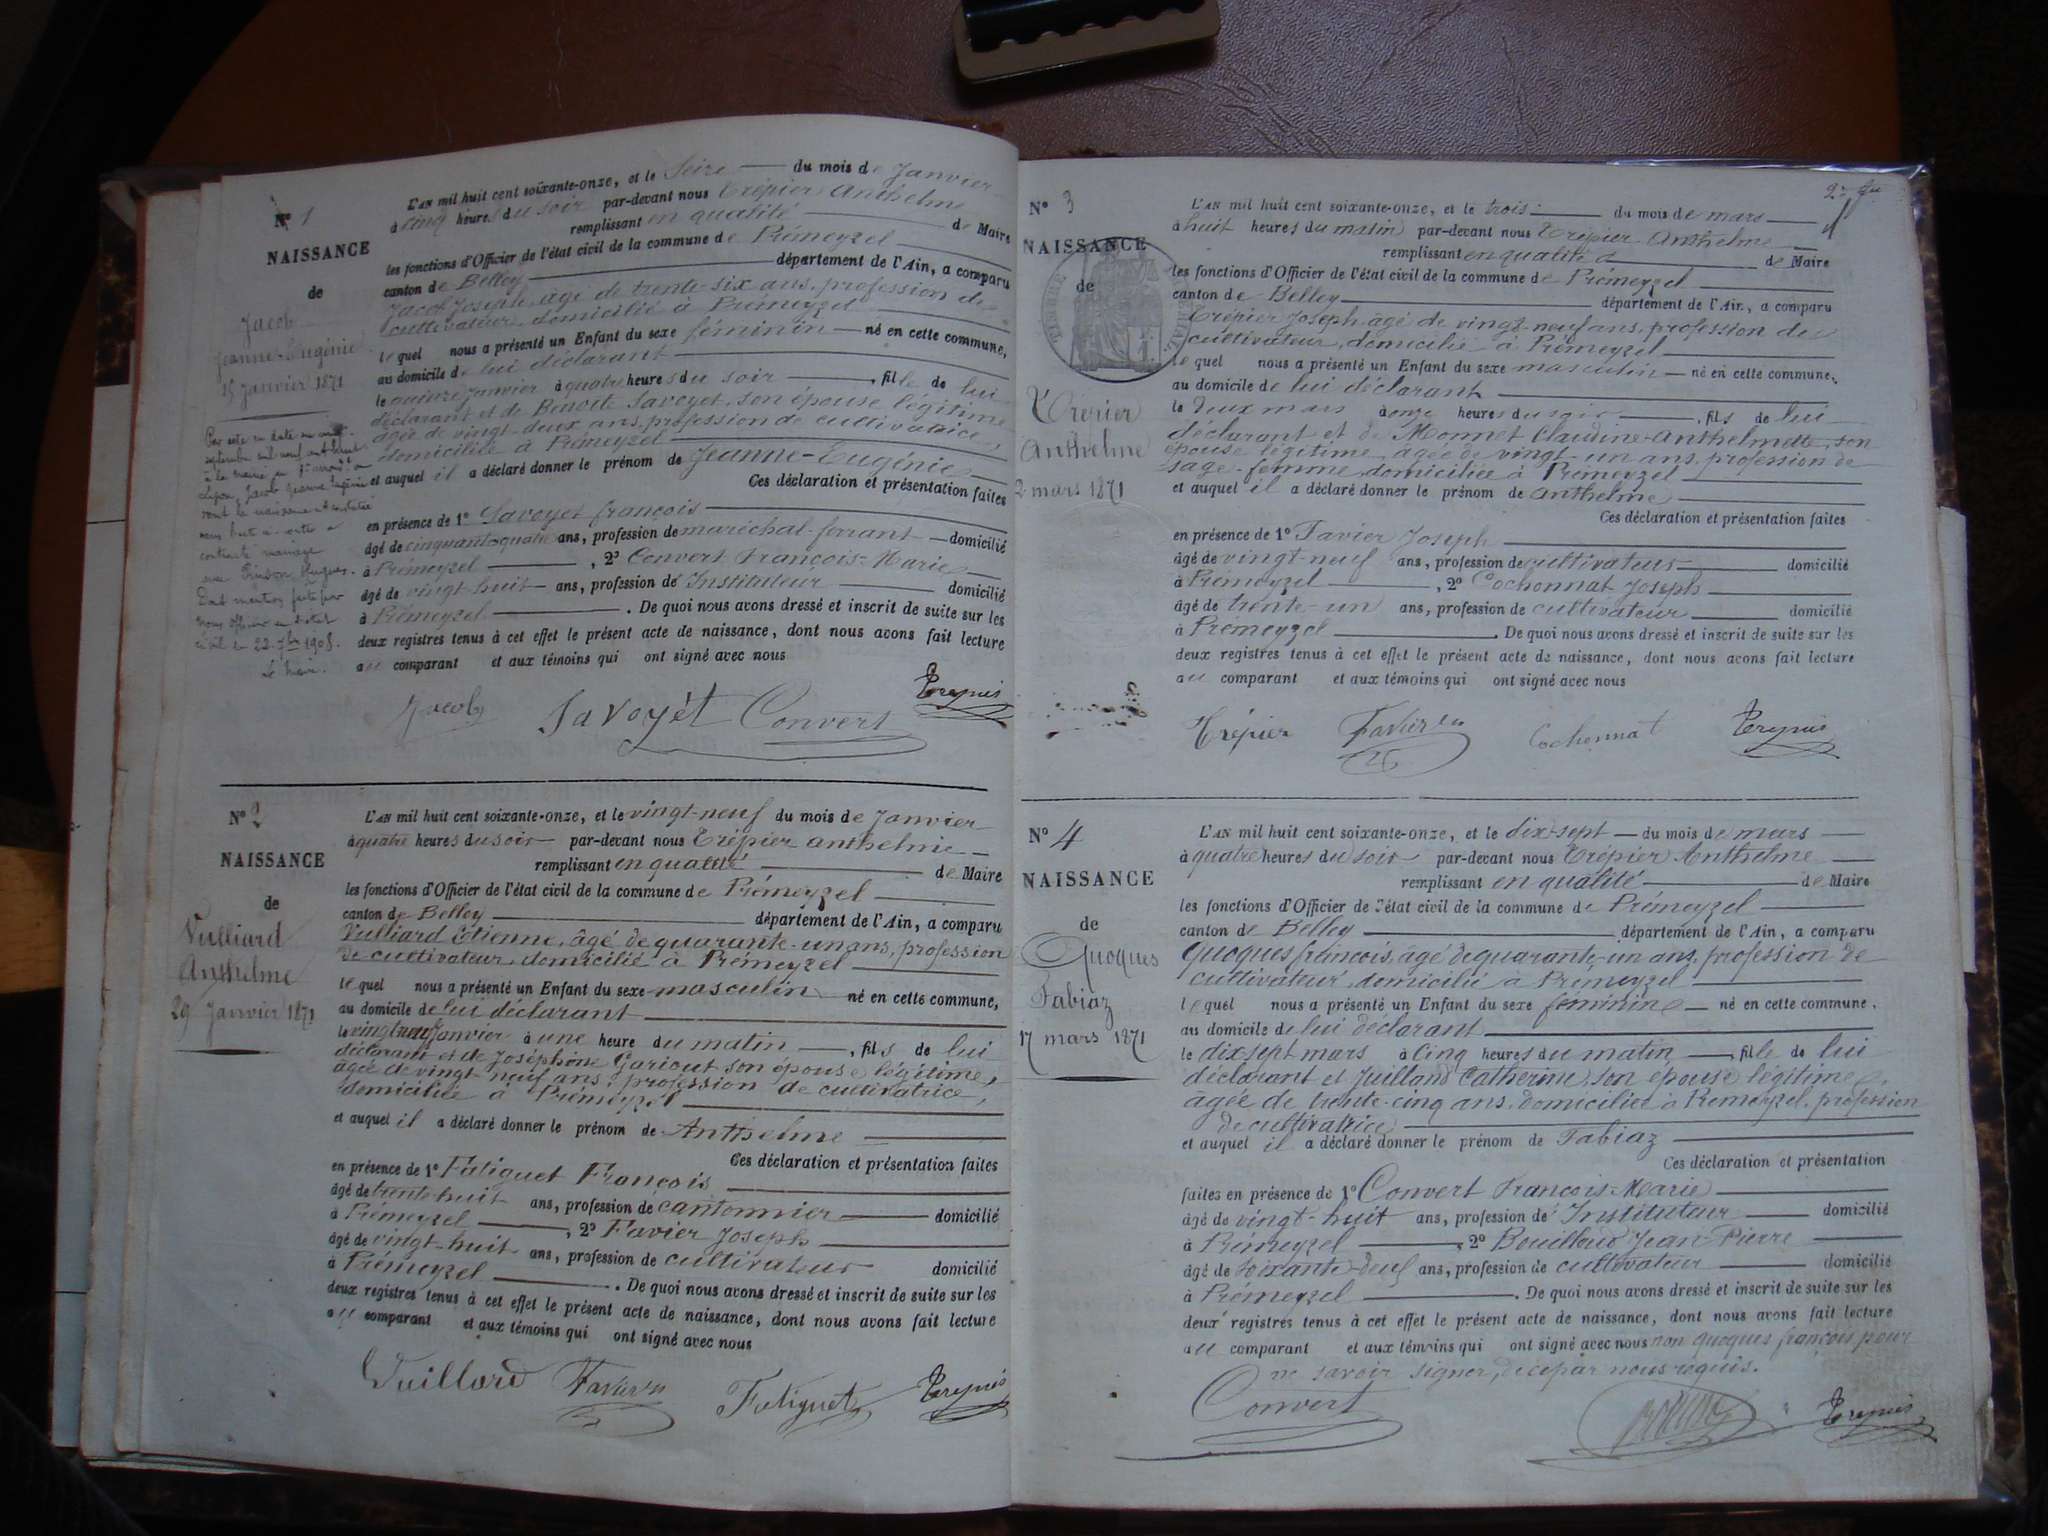 N° 1
NAISSANCE
de
Jacob
Jeanne-Eugénie
15 Janvier 1871
L'AN mil huit cent soixante-onze, et le Seize du mois de Janvier
à cinq heures du soir par-devant nous Trépier Anthelme
remplissant en qualité de Maire
les fonctions d'Officier de l'état civil de la commune de Prémeyzel
canton de Belley département de l'Ain, a comparu
Jacob Joseph, âgé de trente-six ans, profession de
cultivateur, domicilié à Prémeyzel
lequel nous a présenté un Enfant du sexe féminin né en cette commune,
au domicile de lui déclarant
le quinze Janvier à quatre heures du soir, fille de lui
déclarant et de Benoite Savoyet, son épouse légitime
âgée de vingt-deux ans, profession de cultivatrice,
domiciliée à Prémeyzel
et auquel il a déclaré donner le prénom de Jeanne-Eugénie
Ces déclaration et présentation faites
en présence de 1° Savoyet françois
âgé de cinquante-quatre ans, profession de maréchal-ferrant domicilié
à Prémeyzel, 2° Convert François-Marie
âgé de vingt-huit ans, profession de Instituteur domicilié
à Prémeyzel. De quoi nous avons dressé et inscrit de suite sur les
deux registres tenus à cet effet le présent acte de naissance, dont nous avons fait lecture
au comparant et aux témoins qui ont signé avec nous
Jacob Savoyét Convert Trepier
Par acte en date du
septembre mil neuf cent huit
à la mairie du
Lyon, Jacob Jeanne Eugénie
dont la naissance est constatée
contracté mariage
avec Hugues.
Dont mention faite par
nous officier de l'état
civil le 22 7bre 1908.
Le maire.
N° 2
NAISSANCE
de
Vulliard
Anthelme
29 Janvier 1871
L'AN mil huit cent soixante-onze, et le vingt-neuf du mois de Janvier
à quatre heures du soir par-devant nous Trépier anthelme
remplissant en qualité de Maire
les fonctions d'Officier de l'état civil de la commune de Prémeyzel
canton de Belley département de l'Ain, a comparu
Vulliard Etienne, âgé de quarante-un ans, profession
de cultivateur, domicilié à Prémeyzel
lequel nous a présenté un Enfant du sexe masculin né en cette commune,
au domicile de lui déclarant
le vingt neuf Janvier à une heure du matin, fils de lui
déclarant et de Joséphine son épouse légitime,
âgée de vingt-neuf ans, profession de cultivatrice,
domiciliée à Prémeyzel
et auquel il a déclaré donner le prénom de Anthelme
Ces déclaration et présentation faites
en présence de 1° Futiguet François
âgé de trente-huit ans, profession de cantonnier domicilié
à Prémeyzel, 2° Favier Joseph
âgé de vingt-huit ans, profession de cultivateur domicilié
à Prémeyzel. De quoi nous avons dressé et inscrit de suite sur les
deux registres tenus à cet effet le présent acte de naissance, dont nous avons fait lecture
au comparant et aux témoins qui ont signé avec nous
Vuillard Favier Futiguet Trepier
N° 3
NAISSANCE
de
Trepier
Anthelme
2 mars 1871
L'AN mil huit cent soixante-onze, et le trois du mois de mars
à huit heures du matin par-devant nous Trépier Anthelme
remplissant en qualité de Maire
les fonctions d'Officier de l'état civil de la commune de Prémeyzel
canton de Belley département de l'Ain, a comparu
Trépier Joseph âgé de vingt-neuf ans, profession de
cultivateur, domicilié à Prémeyzel
lequel nous a présenté un Enfant du sexe masculin né en cette commune,
au domicile de lui déclarant
le Deux mars à onze heures du soir, fils de lui
déclarant et de Monnet Claudine-Anthelmette, son
épouse légitime, âgée de vingt-un ans, profession de
sage-femme, domiciliée à Prémeyzel
et auquel il a déclaré donner le prénom de Anthelme
Ces déclaration et présentation faites
en présence de 1° Favier Joseph
âgé de vingt-neuf ans, profession de cultivateur domicilié
à Prémeyzel, 2° Cochonnat Joseph
âgé de trente-un ans, profession de cultivateur domicilié
à Prémeyzel. De quoi nous avons dressé et inscrit de suite sur les
deux registres tenus à cet effet le présent acte de naissance, dont nous avons fait lecture
au comparant et aux témoins qui ont signé avec nous
Trépier Favier Cochonnat Trepier
N° 4
NAISSANCE
de
Quoques
Fabiaz
17 mars 1871
L'AN mil huit cent soixante-onze, et le dix-sept du mois de mars
à quatre heures du soir par-devant nous Trépier Anthelme
remplissant en qualité de Maire
les fonctions d'Officier de l'état civil de la commune de Prémeyzel
canton de Belley département de l'Ain, a comparu
Quoques françois, âgé de quarante-un ans, profession de
cultivateur, domicilié à Prémeyzel
lequel nous a présenté un Enfant du sexe féminine né en cette commune,
au domicile de lui déclarant
le dix-sept mars à cinq heures du matin, fille de lui
déclarant et Juilland Catherine, son épouse légitime,
âgée de trente-cinq ans, domiciliée à Prémeyzel, profession
de cultivatrice
et auquel il a déclaré donner le prénom de Fabiaz
Ces déclaration et présentation
faites en présence de 1° Convert François-Marie
âgé de vingt-huit ans, profession de Instituteur domicilié
à Prémeyzel, 2° Bouilloud Jean-Pierre
âgé de soixante-deux ans, profession de cultivateur domicilié
à Prémeyzel. De quoi nous avons dressé et inscrit de suite sur les
deux registres tenus à cet effet le présent acte de naissance, dont nous avons fait lecture
au comparant et aux témoins qui ont signé avec nous non Quoques françois pour
ne savoir signer, de ce par nous requis.
Convert Trepier